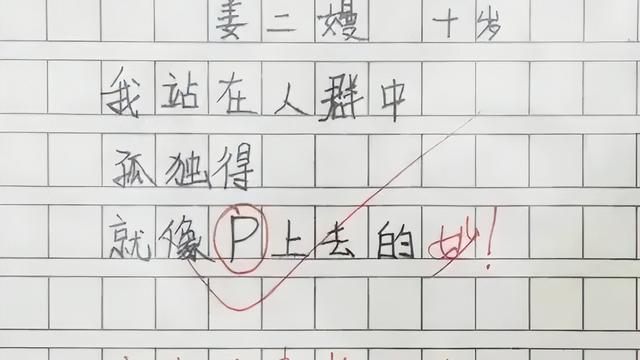 姜二嫚 十岁
我站在人群中
孤独得
就像P上去的 妙!